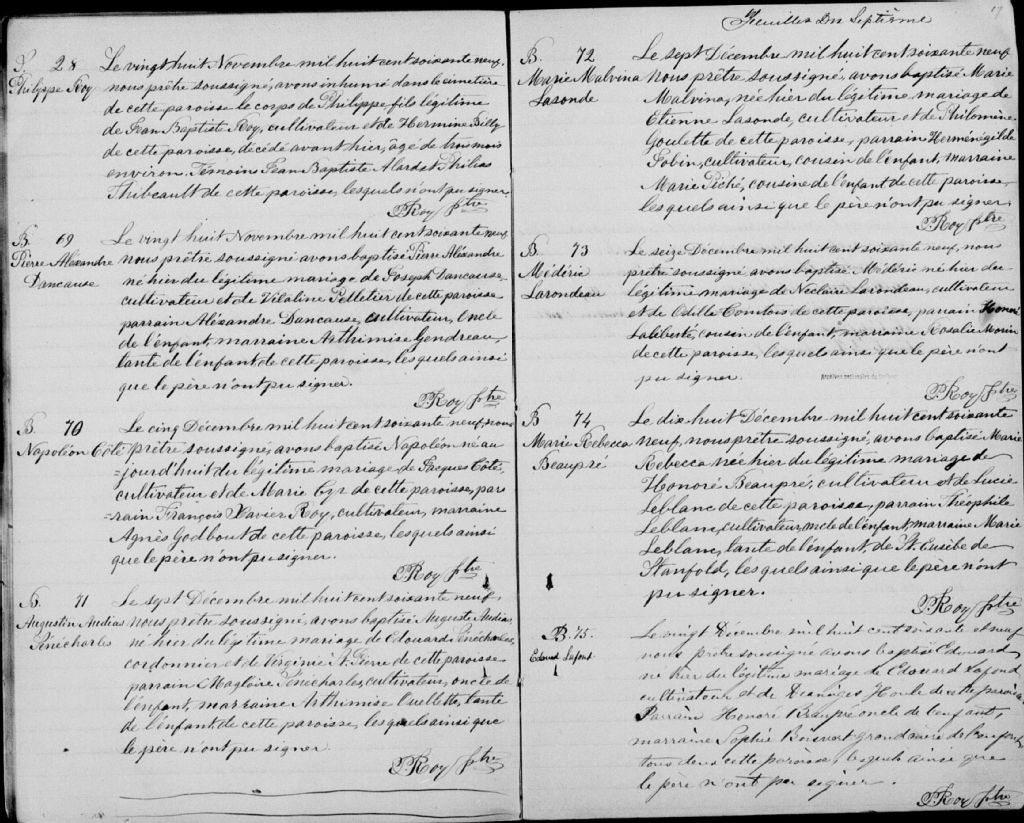 S. 28
Philippe Roy
Le vingt huit Novembre mil huit cent soixante neuf,
nous prêtre soussigné, avons inhumé dans le cimetière
de cette paroisse le corps de Philippe fils légitime
de Jean Baptiste Roy, cultivateur et de Hermine Billy
de cette paroisse, décédé avant hier, âgé de trois mois
environ. Témoins Jean Baptiste Alard et Philias
Thibeault de cette paroisse, lesquels n'ont pu signer
P. Roy ptre
B. 69
Pierre Aléxandre
Dancause
Le vingt huit Novembre mil huit cent soixante neuf,
nous prêtre soussigné avons baptisé Pierre Aléxandre
né hier du légitime mariage de Joseph Dancause,
cultivateur et de Vitaline Pelletier de cette paroisse
parrain Aléxandre Dancause, cultivateur, oncle
de l'enfant, marraine Arthimise Gendreau,
tante de l'enfant de cette paroisse, lesquels ainsi
que le père n'ont pu signer.
P. Roy ptre
B. 70
Napoléon Côté
Le cinq Décembre mil huit cent soixante neuf, nous
prêtre soussigné, avons baptisé Napoléon né au
=jourd'hui du légitime mariage de Jacques Côté,
cultivateur et de Marie Cyr de cette paroisse, par
=rain François Xavier Roy, cultivateur, marraine
Agnès Godbout de cette paroisse, lesquels ainsi
que le père n'ont pu signer.
P. Roy ptre
B. 71
Augustin Audias
Pénécharles
Le sept Décembre mil huit cent soixante neuf,
nous prêtre soussigné, avons baptisé Auguste Audias,
né hier du légitime mariage de Edouard Pénécharles,
cordonnier et de Virginie St. Pierre de cette paroisse
parrain Magloire Pénécharles, cultivateur, oncle de
l'enfant, marraine Arthimise Ouellette, tante
de l'enfant de cette paroisse, lesquels ainsi que
le père n'ont pu signer
P. Roy ptre
Feuillet Dix Septième
17
B. 72
Marie Malvina
Lasonde
Le sept Décembre mil huit cent soixante neuf
nous prêtre soussigné, avons baptisé Marie
Malvina, née hier du légitime mariage de
Etienne Lasonde, cultivateur et de Philomine
Goulette de cette paroisse, parrain Herménégilde
Tobin, cultivateur, cousin de l'enfant, marraine
Marie Piché, cousine de l'enfant de cette paroisse,
lesquels ainsi que le père n'ont pu signer,
P. Roy ptre
B. 73
Médéric
Larondeau
Le seize Décembre mil huit cent soixante neuf, nous
prêtre soussigné avons baptisé Médéric né hier du
légitime mariage de Neclaire Larondeau, cultivateur
et de Odille Comtois de cette paroisse, parrain Honoré
Laliberté, cousin de l'enfant, marraine Rosalie Morin
de cette paroisse, lesquels ainsi que le père n'ont
pu signer.
Archives nationales du Québec
P. Roy ptre
B. 74
Marie Rebecca
Beaupré
Le dix huit Décembre mil huit cent soixante
neuf, nous prêtre soussigné, avons baptisé Marie
Rebecca née hier du légitime mariage de
Honoré Beaupré, cultivateur et de Lucie
Leblanc de cette paroisse, parrain Théophile
Leblanc, cultivateur, oncle de l'enfant, marraine Marie
Leblanc, tante de l'enfant, de St. Eusèbe de
Stanfold, lesquels ainsi que le père n'ont
pu signer.
P. Roy ptre
B. 75.
Edouard Lafond
Le vingt Décembre mil huit cent soixante et neuf
nous prêtre soussigné avons baptisé Edouard
né hier du légitime mariage de Edouard Lafond
cultivateur et de Houle de cette paroisse
Parrain Honoré Beaupré oncle de l'enfant,
marraine Sophie Boisvert grand mère de l'enfant
tous de cette paroisse, lesquels ainsi que
le père n'ont pu signer.
P. Roy ptre